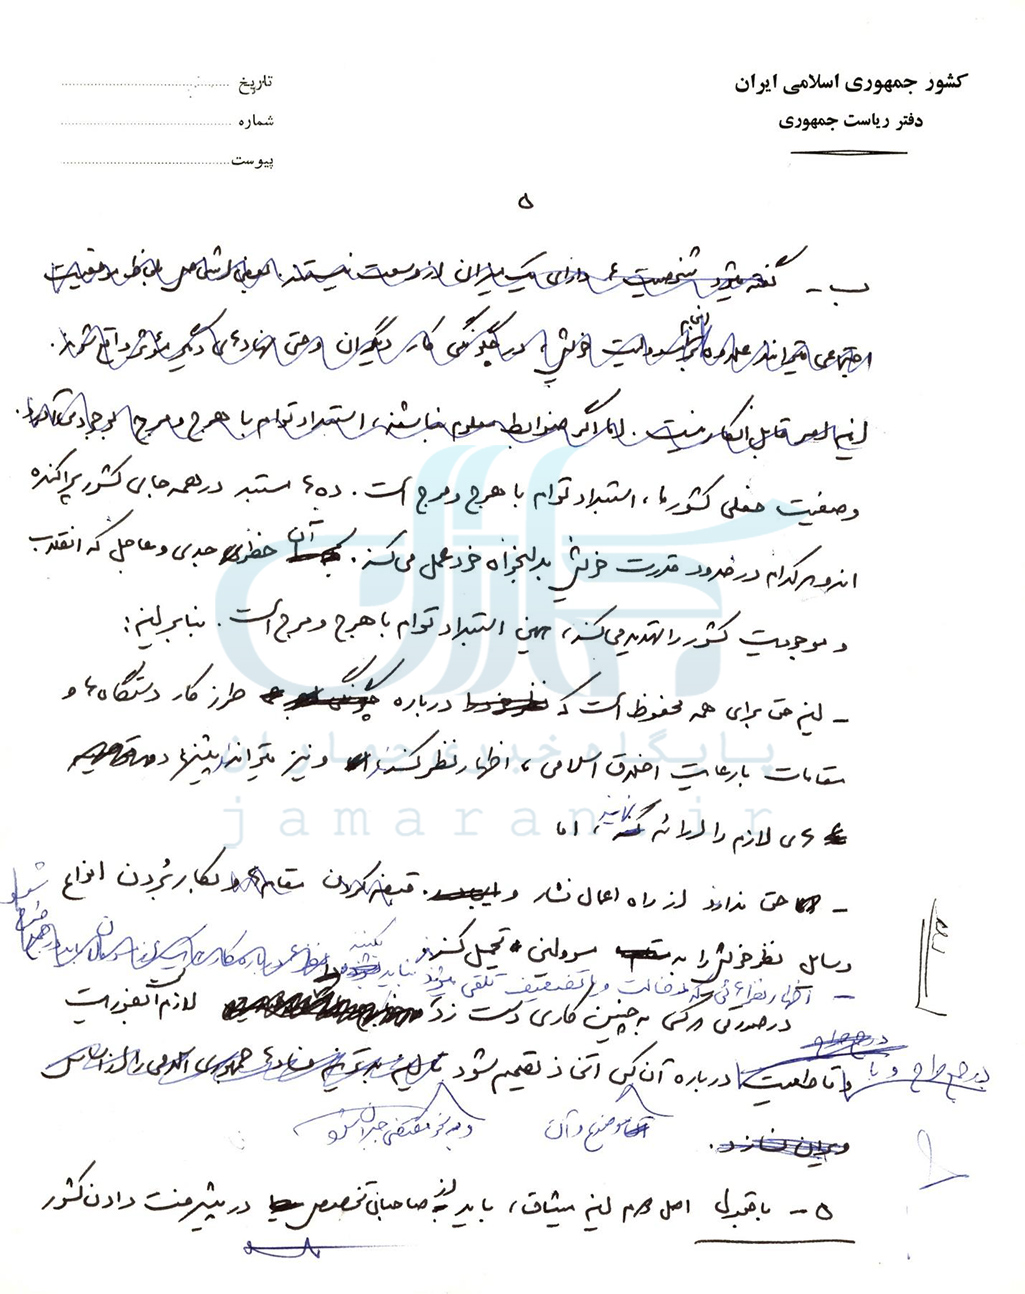 کشور جمهوری اسلامی ایران
دفتر ریاست جمهوری
تاریخ
شماره
پیوست
۵
ب - گفته میشود شخصیت ها دارای یک میزان از وسعت نیستند. بعضی اشخاص بلحاظ موقعیت
اجتماعی میتوانند علاوه بر انجام مسوولیت خویش، در چگونگی کار دیگران و حتی نهادهای دیگر مؤثر واقع شوند.
این امر قابل انکار نیست. اما اگر ضوابط معلوم نباشند، استبداد توام با هرج و مرج بوجود می‌آورد.
وضعیت فعلی کشور ما، استبداد توام با هرج و مرج است. ده ها مستبد در همه جای کشور پراکنده
اند و هر کدام در حدود قدرت خویش بدلخواه خود عمل می‌کند. آن خطر جدی و عاجل که انقلاب
و موجودیت کشور را تهدید می‌کند، همین استبداد توام با هرج و مرج است. بنابر این:
- این حق برای همه محفوظ است که درباره چگونگی طرز کار دستگاه ها و
مقامات با رعایت اخلاق اسلامی، اظهار نظر کنند و نیز میتوانند پیشنهاد
های لازم را ارائه نمایند، اما
- حق ندارند از راه اعمال فشار و قبضه کردن مقام ها و بکار بردن انواع
وسایل نظر خویش را به مسوولین تحمیل کنند
- اظهار نظرهائی که دخالت و تضعیف تلقی میشوند نباید بکنند
در صورتی هر کسی به چنین کاری دست زد لازم آنفوریت
در جمع طرح و با قاطعیت درباره آن کسی اتخاذ تصمیم شود تا این بدترین فساد ها جمهوری اسلامی را از اساس
موضوع و آن
و به نحو مقتضی جبران شود
ویران نسازد.
۵ - با قبول اصل دوم این میثاق، باید از صاحبان تخصص در پیشرفت دادن کشور
پایگاه خبری جماران
jamaran.ir